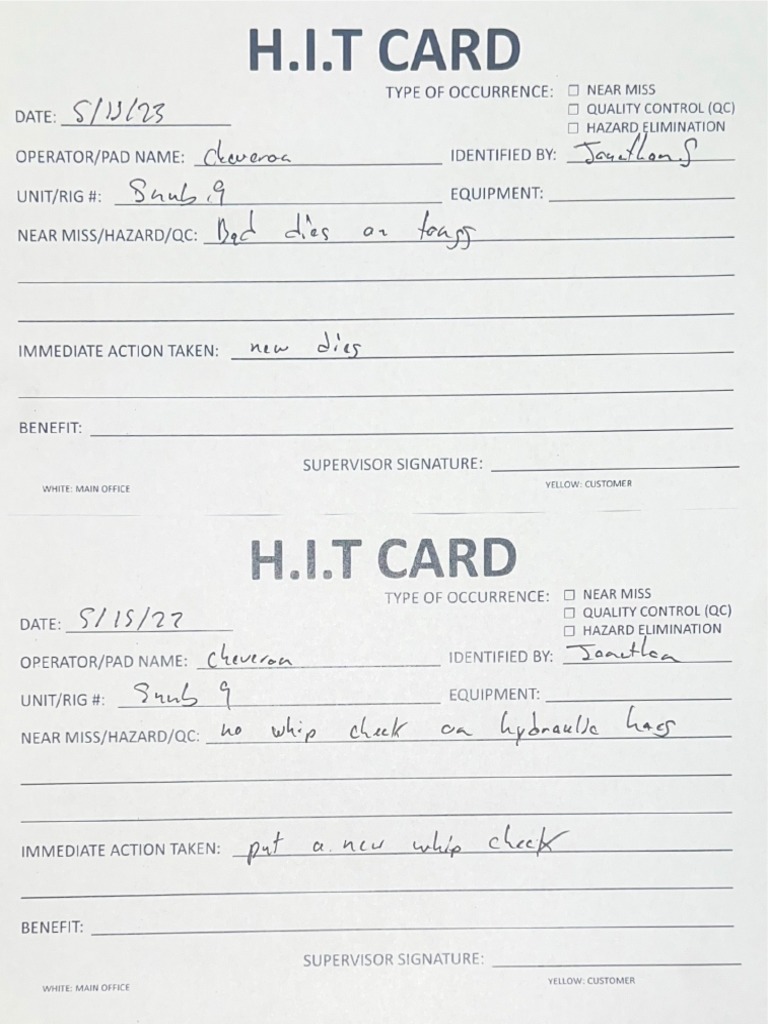 H.I.T CARD
TYPE OF OCCURRENCE: ☐ NEAR MISS
☐ QUALITY CONTROL (QC)
☐ HAZARD ELIMINATION
DATE: 5/13/23
OPERATOR/PAD NAME: Cheveron IDENTIFIED BY: Jonathon S
UNIT/RIG #: Snub 9 EQUIPMENT:
NEAR MISS/HAZARD/QC: Bad dies on tongs
IMMEDIATE ACTION TAKEN: new dies
BENEFIT:
SUPERVISOR SIGNATURE:
WHITE: MAIN OFFICE YELLOW: CUSTOMER
H.I.T CARD
TYPE OF OCCURRENCE: ☐ NEAR MISS
☐ QUALITY CONTROL (QC)
☐ HAZARD ELIMINATION
DATE: 5/15/22
OPERATOR/PAD NAME: Cheveron IDENTIFIED BY: Jonathon
UNIT/RIG #: Snub 9 EQUIPMENT:
NEAR MISS/HAZARD/QC: no whip check on hydraulic
IMMEDIATE ACTION TAKEN: put a new whip check
BENEFIT:
SUPERVISOR SIGNATURE:
WHITE: MAIN OFFICE YELLOW: CUSTOMER